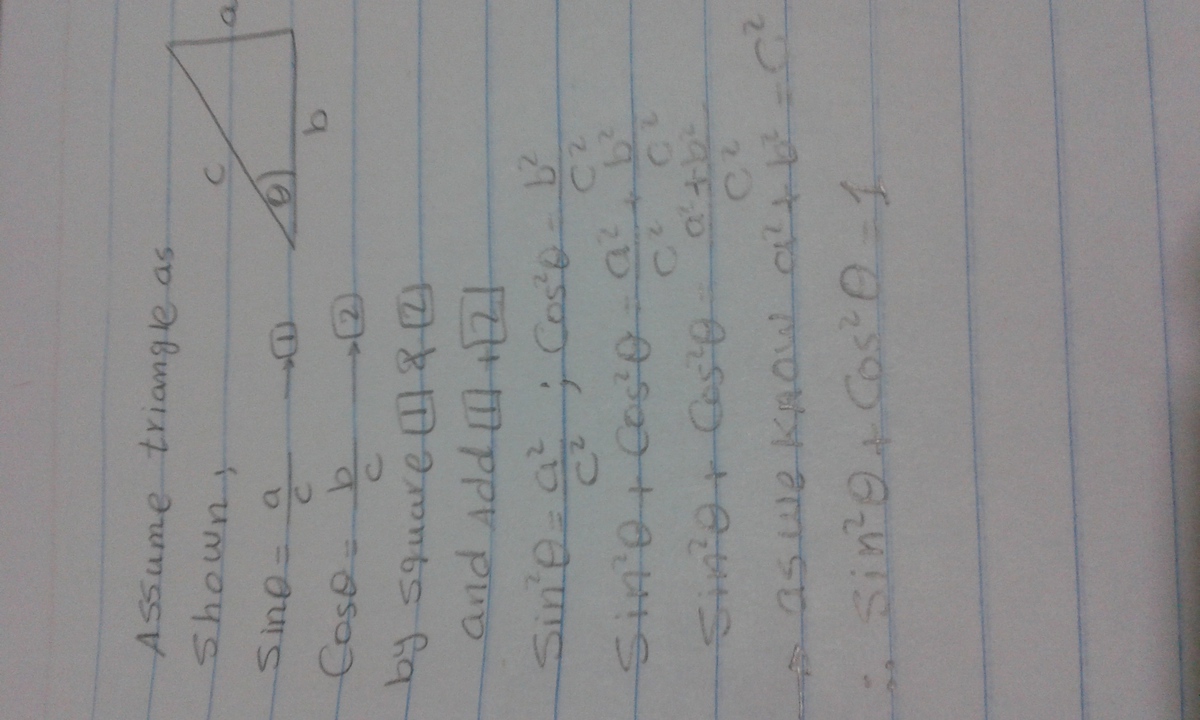 Assume triangle as
Shown,
c
a
θ
b
Sinθ = a/c → 1
Cosθ = b/c → 2
by square 1 & 2
and Add 1 + 2
Sin²θ = a²/c² ; Cos²θ = b²/c²
Sin²θ + Cos²θ = a²/c² + b²/c²
Sin²θ + Cos²θ = a²+b²/c²
→ as we know a² + b² = c²
∴ Sin²θ + Cos²θ = 1